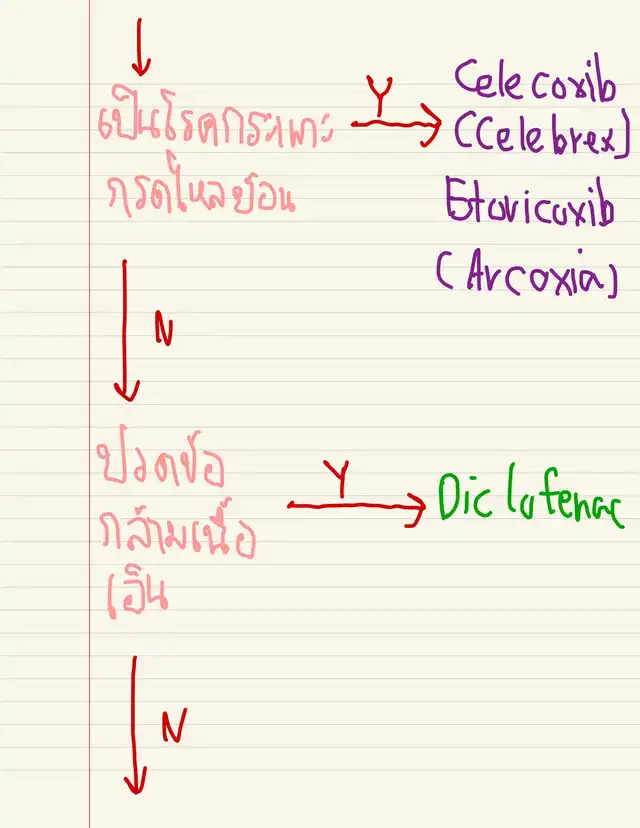 เป็นโรคกระเพาะ
กรดไหลย้อน
Y
Celecoxib
(Celebrex)
Etoricoxib
(Arcoxia)
N
ปวดข้อ
กล้ามเนื้อ
เอ็น
Y
Diclofenac
N